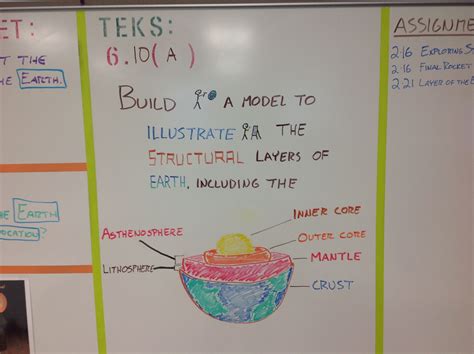 ET:
T THE
HE EARTH.
HE EARTH
OCATION?
TEKS:
6.10(A)
BUILD A MODEL TO
ILLUSTRATE THE
STRUCTURAL LAYERS OF
EARTH, INCLUDING THE
INNER CORE
OUTER CORE
MANTLE
CRUST
ASTHENOSPHERE
LITHOSPHERE
ASSIGNME
2-16 EXPLORING ST
2-16 FINAL ROCKET
2-21 LAYER OF THE E